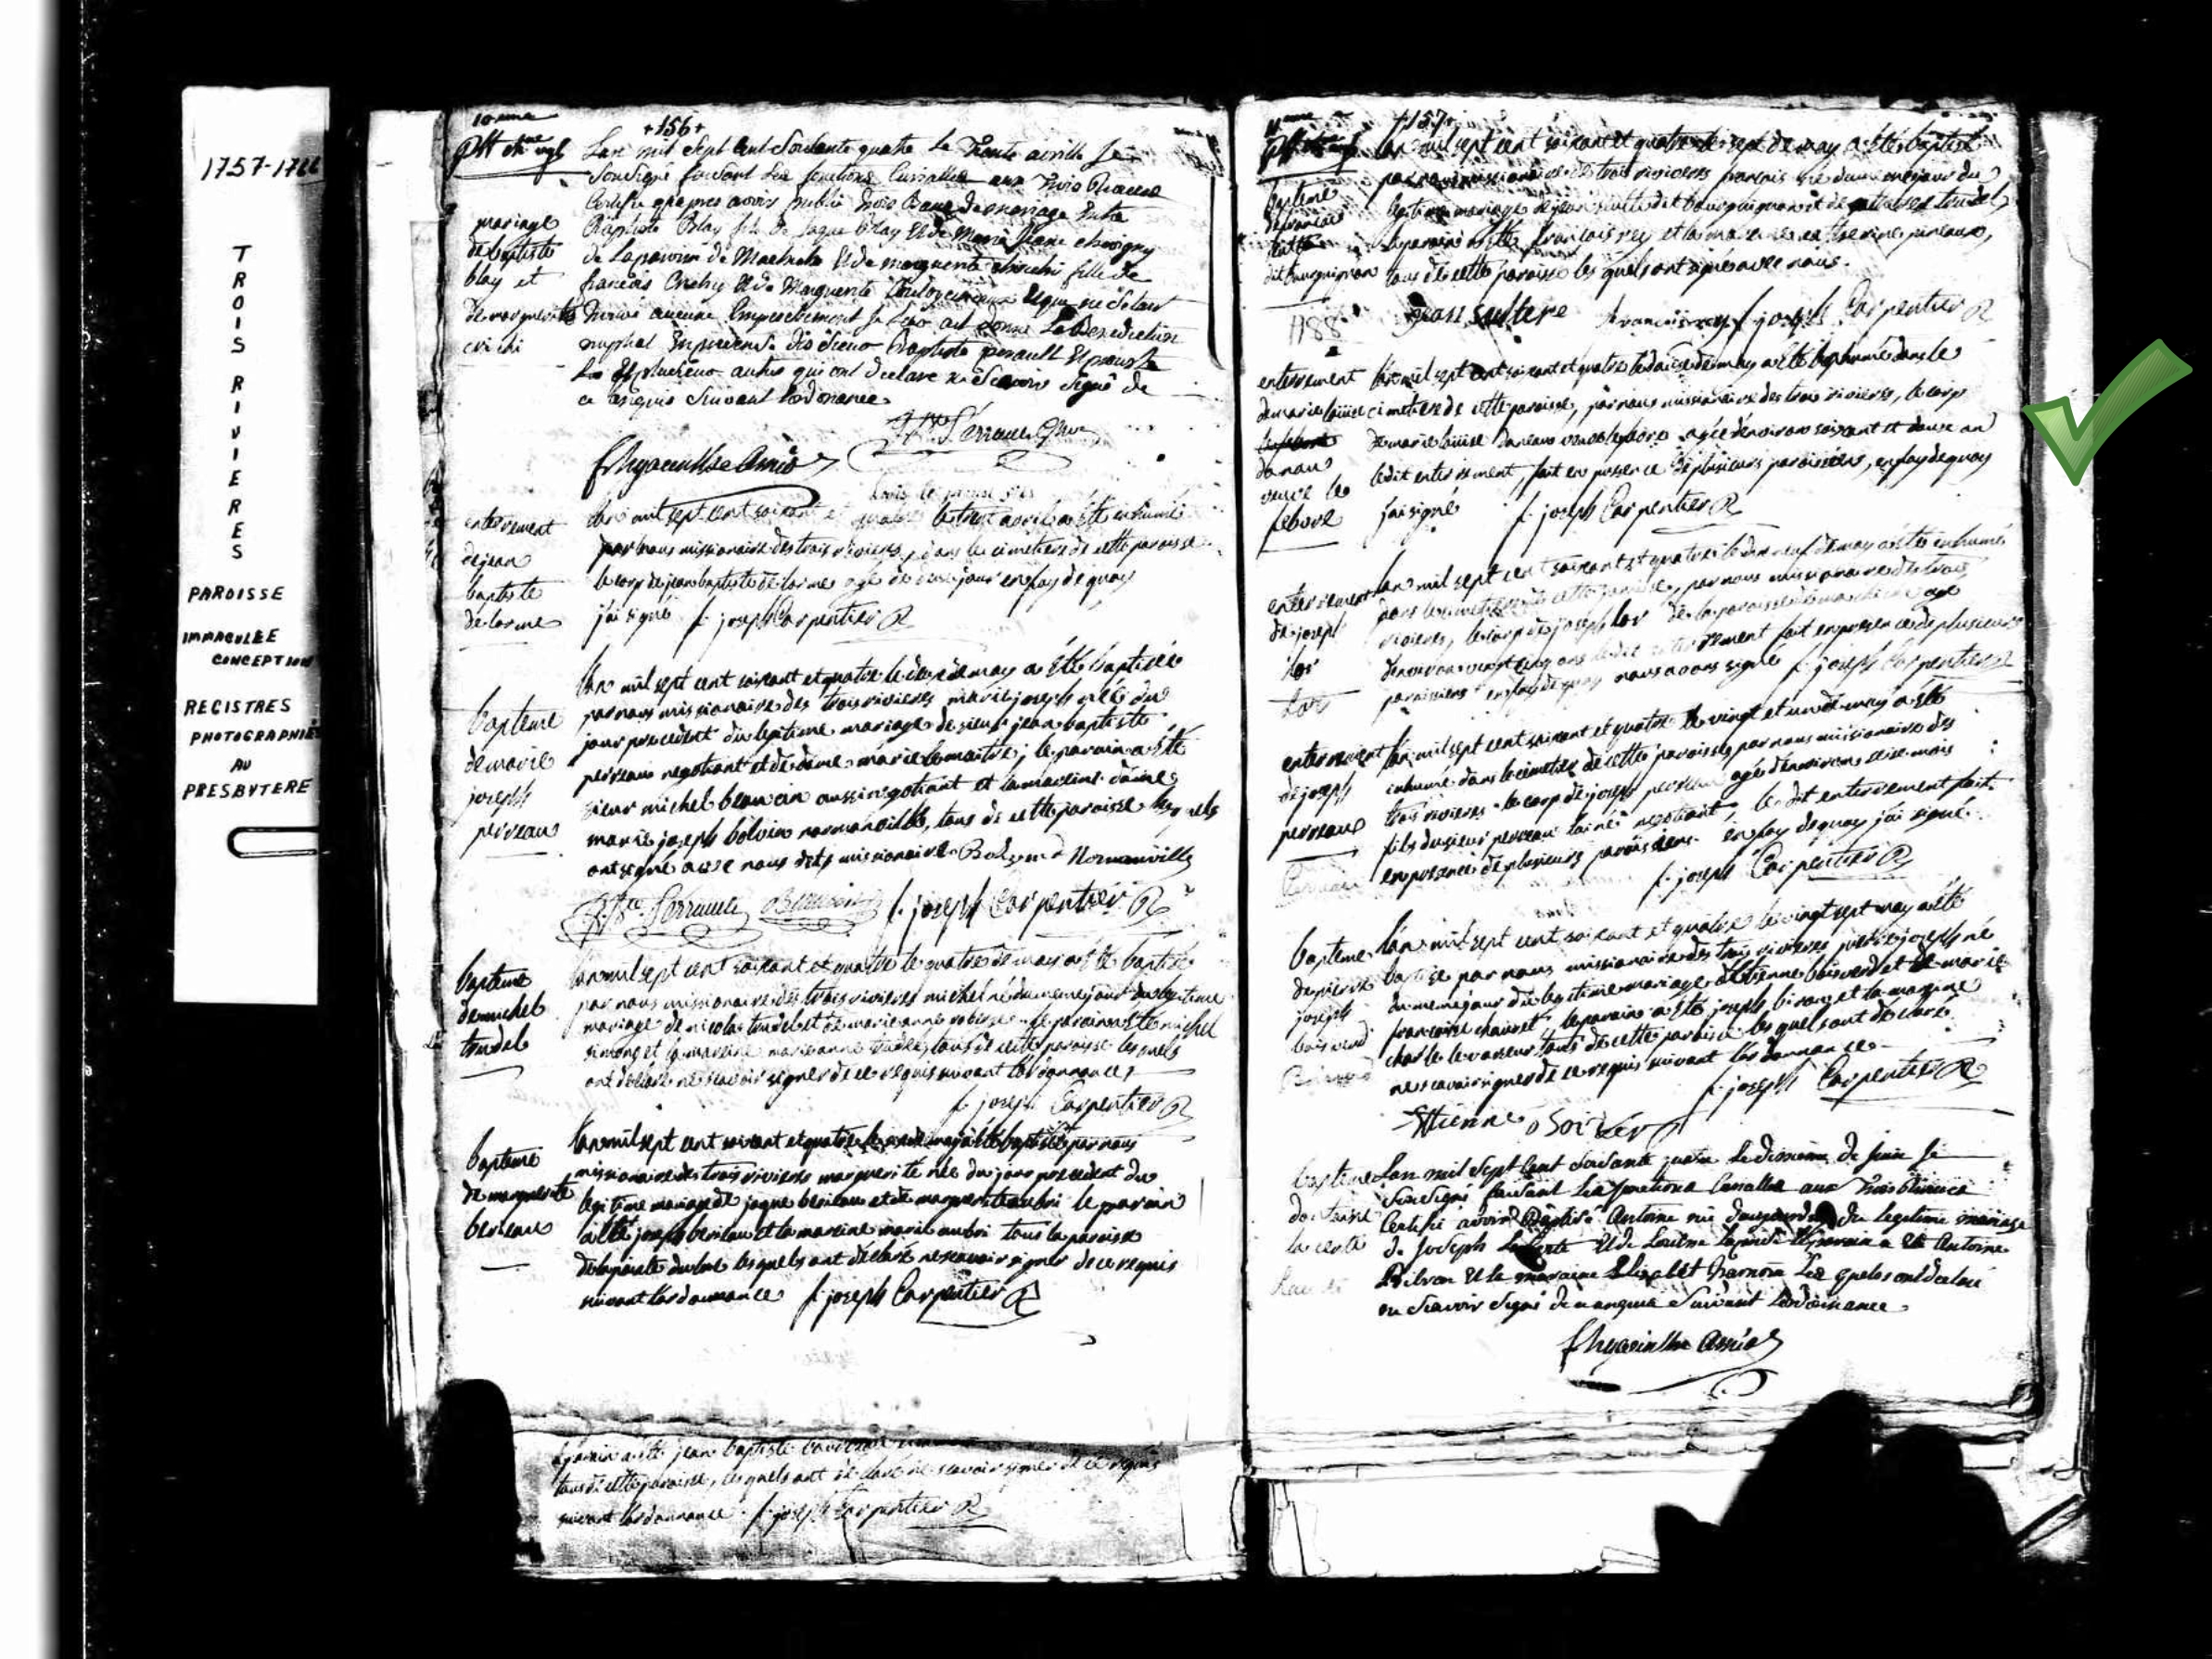 1757-1766
TROIS RIVIERES
PAROISSE
IMMACULEE
CONCEPTION
REGISTRES
PHOTOGRAPHIÉS
AU
PRESBYTERE
10 eme
+156+
Lan mil Sept Cent Soixante quatre Le Trente avrille Je
Soussigné faisant Les fonctions Curialles aux Trois Rivieres
Certifie qu'apres avoir publié trois Bans de mariage Entre
Baptiste Blay fils De Jaque Blay Et de Marie
de La paroisse de Machiche Et de marguerite fille de
francois Et de Marguerite Et que ne Setant
Trouvé aucune Empeschement Je Leur ait donné La Benediction
nuptial En presence Baptiste perault Et
Et plusieurs autres qui ont declaré ne Scavoir Signé de
ce enquis Suivant Lordonance
mariage
de baptiste
blay et
de marguerite
crichi
f hyacinthe Amio
enterrement
de jean
baptiste
de lorme
lan mil sept cent soixant et quatre le trent avril a été enhumé
par nous missionaire des trois rivieres, dans le cimetiere de cette paroisse
le corp de jean baptiste de lorme agé de jour en foy de quoy
j'ai signé f. joseph Carpentier R
bapteme
de marie
joseph
perreau
lan mil sept cent soixant et quatre le deux de may a été baptisée
par nous missionaire des trois rivieres marie joseph née du
jour precedent du legitime mariage de sieur jean baptiste
perreau negotiant et de dame marie le maitre; le parain a été
sieur michel beauvin aussi negotiant et la maraine dame
marie joseph bolvin normanville, tous de cette paroisse lesquels
ont signé avec nous missionaire Normanville
f. joseph Carpentier R
bapteme
de michel
trudel
lan mil sept cent soixant et quatre le quatre de may a été baptisé
par nous missionaire des trois rivieres michel né du meme jour du legitime
mariage de nicolas trudel et de marie anne le parain a été michel
simon et la maraine marie anne tous de cette paroisse lesquels
ont declaré ne scavoir signer de ce requis suivant l'ordonnance
f. joseph Carpentier R
bapteme
de marguerite
beriau
lan mil sept cent soixant et quatre le may a été baptisée par nous
missionaire des trois rivieres marguerite née du jour precedent du
legitime mariage de jaque beriau et de marguerite aubri le parain
a été joseph beriau et la maraine marie aubri tous la paroisse
de la pointe du lac lesquels ont declaré ne scavoir signer de ce requis
suivant l'ordonnance f. joseph Carpentier R
le parain a été jean baptiste
tous de cette paroisse, lesquels ont declaré ne scavoir signer de ce requis
suivant l'ordonnance. f. joseph Carpentier R
11 eme
+157+
lan mil sept cent soixant et quatre le sept de may a été baptisé
par nous missionaire des trois rivieres francois né du meme jour du
legitime mariage de jean sulte dit bourguignon et de trudel,
le parain a été francois rey et la maraine catherine
tous de cette paroisse lesquels ont signé avec nous.
bapteme
de francois
sulte
dit bourguignon
jean sultere francois rey f. joseph Carpentier R
1188
enterrement
de marie louise
daneau
veuve le
febvre
lan mil sept cent soixant et quatre le douse de may a été inhumé dans le
cimetiere de cette paroisse, par nous missionaire des trois rivieres, le corp
de marie louise daneau veuve lefebvre agée d'environ soixant et douse an
le dit enterrement, fait en presence de plusieurs paroissiens, en foy de quoy
j'ai signé f. joseph Carpentier R
enterrement
de joseph
lor
lan mil sept cent soixant et quatre le dix neuf de may a été enhumé
dans le cimetiere de cette paroisse, par nous missionaire des trois
rivieres, le corp de joseph lor de la paroisse de machiche agé
d'environ vingt cinq ans le dit enterrement fait en presence de plusieurs
paroissiens en foy de quoy nous avons signé f. joseph Carpentier R
enterrement
de joseph
perreau
lan mil sept cent soixant et quatre le vingt et un de may a été
inhumé dans le cimetiere de cette paroisse, par nous missionaire des
trois rivieres le corp de joseph perreau agé d'environ seise mois
fils du sieur perreau l'ainé negotiant, le dit enterrement fait
en presence de plusieurs paroissiens en foy de quoy j'ai signé.
f. joseph Carpentier R
bapteme
de pierre
joseph
boisverd
lan mil sept cent soixant et quatre le vingt sept may a été
baptisé par nous missionaire des trois rivieres pierre joseph né
du meme jour du legitime mariage d'etienne boisverd et de marie
francoise chauret, le parain a été joseph et la maraine
charle le vasseur tous de cette paroisse lesquel sont declaré
ne scavoir signer de ce requis suivant l'ordonnance
f. joseph Carpentier R
Ettienne
bapteme
dantoine
la certe
Lan mil Sept Cent Soixante quatre Le de Juin Je
Soussigné faisant Les fonctions Curialles aux Trois Rivieres
Certifie avoir Baptisé Antoine né daujourdui du Legitime mariage
de Joseph Et de Le parain a Eté Antoine
Et la maraine Elizabet Les quels ont declaré
ne Scavoir Signé de ce enquis Suivant Lordonance
f hyacinthe Amio